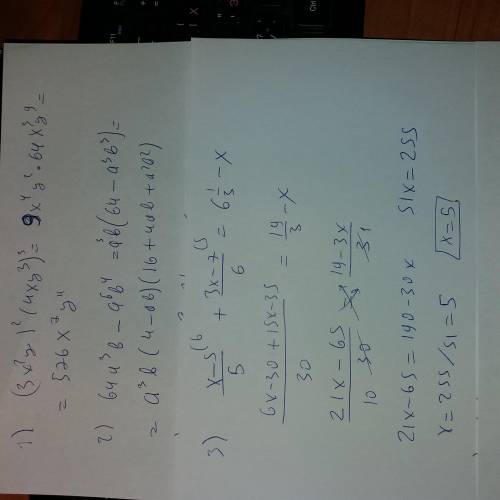 1) (3x²y)² (4xy³)³ = 9x⁴y² · 64x³y⁹ =
= 576x⁷y¹¹
2) 64a³b - a⁶b⁴ = a³b(64 - a³b³) =
= a³b(4-ab)(16+4ab+a²b²)
3) x-5⁽⁶/5 + 3x-7⁽⁵/6 = 6 1/3 - x
6x-30+15x-35/30 = 19/3 - x
21x-65/30 10 = 19-3x/3 1
21x-65 = 190-30x 51x = 255
x = 255/51 = 5 x=5